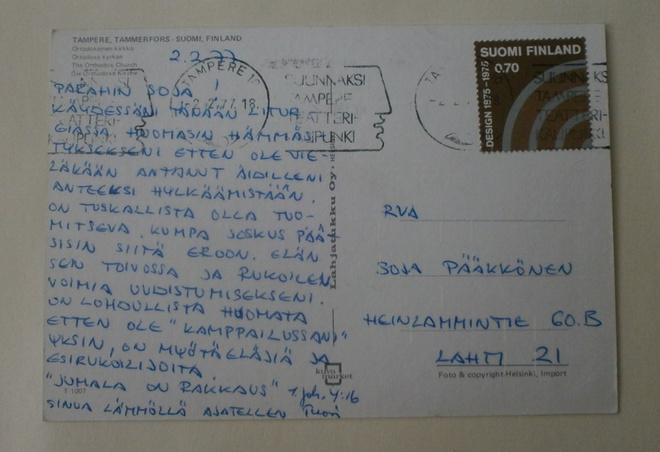 TAMPERE, TAMMERFORS - SUOMI, FINLAND
Ortodoksinen kirkko
Ortodoxa kyrkan
The Orthodox Church
Die Orthodoxe Kirche
2.2.77
PARAHIN SOJA !
KÄYDESSÄNI TÄNÄÄN LITUR
GIASSA HUOMASIN HÄMMÄS
TYKSEKSENI ETTEN OLE VIE-
LÄKÄÄN ANTANUT ÄIDILLENI
ANTEEKSI HYLKÄÄMISTÄÄN.
ON TUSKALLISTA OLLA TUO-
MITSEVA. KUMPA JOSKUS PÄÄ-
SISIN SIITÄ EROON. ELÄN
SEN TOIVOSSA JA RUKOILEN
VOIMIA UUDISTUMISEKSENI.
ON LOHDULLISTA HUOMATA
ETTEN OLE "KAMPPAILUSSANI"
YKSIN, ON MYÖTÄELÄJIÄ JA
ESIRUKOILIJOITA
"JUMALA ON RAKKAUS" 1. Joh. 4:16
SINUA LÄMMÖLLÄ AJATELLEN
TAMPERE
2.2.77.18
SUUNNAKSI
TAMPERE
TEATTERI-
KAUPUNKI
SUOMI FINLAND
0.70
DESIGN 1875-1975
Lahjatukku Oy.
RVA
SOJA PÄÄKKÖNEN
HEINLAMMINTIE 60.B
LAHTI 21
kuva
market
Foto & copyright Helsinki, Import